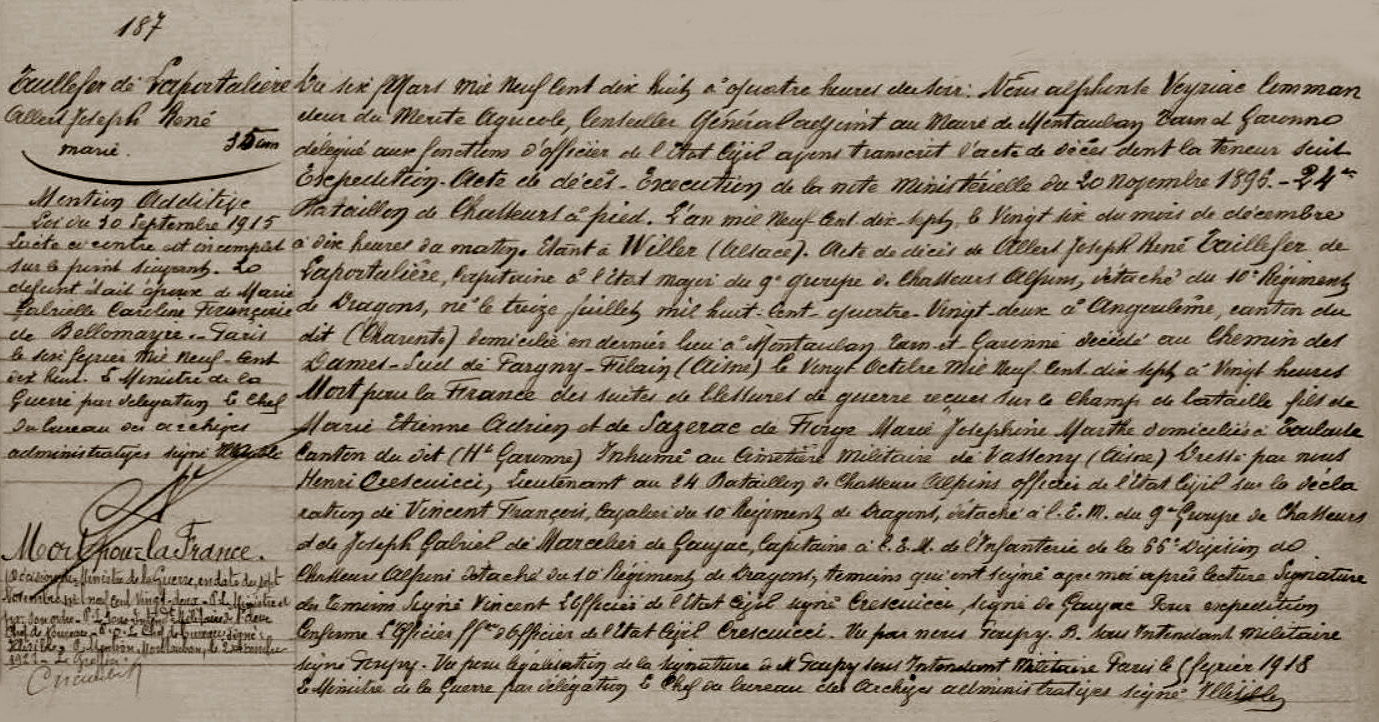 187
Taillefer de Laportalière
Albert Joseph René
marié. 35 ans
Mention Additive
Loi du 30 Septembre 1915
L'acte ci contre est incomplet
sur le point suivant. Le
défunt était époux de Marie
Gabrielle Caroline Françoise
de Bellomayre. Paris
le six février mil neuf-cent
dix huit. P. le Ministre de la
Guerre par délégation le Chef
du bureau des archives
administratives signé
Mort pour la France.
Décision du Ministre de la Guerre, en date du sept
Novembre mil neuf cent vingt-deux - P. le Ministre et
par son ordre - P. le Sous Intend. Militaire de
Chef de bureau - P. le Chef de bureau signé:
Montauban, le 2 décembre
1922 - Le Greffier
Du six Mars mil neuf cent dix huit à quatre heures du soir: Nous Alphonse Veyriac Comman
deur du Mérite Agricole, Conseiller Général adjoint au Maire de Montauban Tarn et Garonne
délégué aux fonctions d'officier de l'Etat Civil avons transcrit l'acte de décès dont la teneur suit
Expédition - Acte de décès - Exécution de la note Ministérielle du 20 Novembre 1896. - 24me
Bataillon de Chasseurs à pied. L'an mil neuf cent dix-sept, le vingt six du mois de décembre
à dix heures du matin. Etant à Willer (Alsace). Acte de décès de Albert Joseph René Taillefer de
Laportalière, Capitaine à l'Etat major du 9e groupe de Chasseurs Alpins, détaché du 10e Régiment
de Dragons, né le treize juillet mil huit-cent-quatre-vingt-deux à Angoulême, canton du
dit (Charente) domicilié en dernier lieu à Montauban Tarn-et-Garonne décédé au Chemin des
Dames - Sud de Pargny-Filain (Aisne) le vingt Octobre mil neuf cent dix sept à vingt heures
Mort pour la France des suites de blessures de guerre reçues sur le champ de bataille fils de
Marie Etienne Adrien et de Sazerac de Forge Marie Joséphine Marthe domiciliés à Toulouse
Canton du dit (Hte Garonne) Inhumé au Cimetière militaire de Vasseny (Aisne) Dressé par nous
Henri Crescuicci, Lieutenant au 24 Bataillon de Chasseurs Alpins officier de l'Etat Civil sur la décla
ration de Vincent François, Cavalier du 10 Régiment de Dragons, détaché à l'E. M. du 9e Groupe de Chasseurs
et de Joseph Gabriel de Marcelier de Gaujac, Capitaine à l'E. M. de l'Infanterie de la 66e Division de
Chasseurs Alpins détaché du 10e Régiment de Dragons, témoins qui ont signé avec moi après lecture Signature
des témoins Signé Vincent L'Officier de l'Etat Civil signé Crescuicci, signé de Gaujac Pour expédition
Conforme L'Officier ff. d'Officier de l'Etat Civil Crescuicci. Vu par nous Goupy. B. sous Intendant militaire
signé Goupy. Vu pour légalisation de la signature de M Goupy sous Intendant Militaire Paris le 6 février 1918
le Ministre de la Guerre par délégation le Chef du bureau des Archives administratives signé Illisible